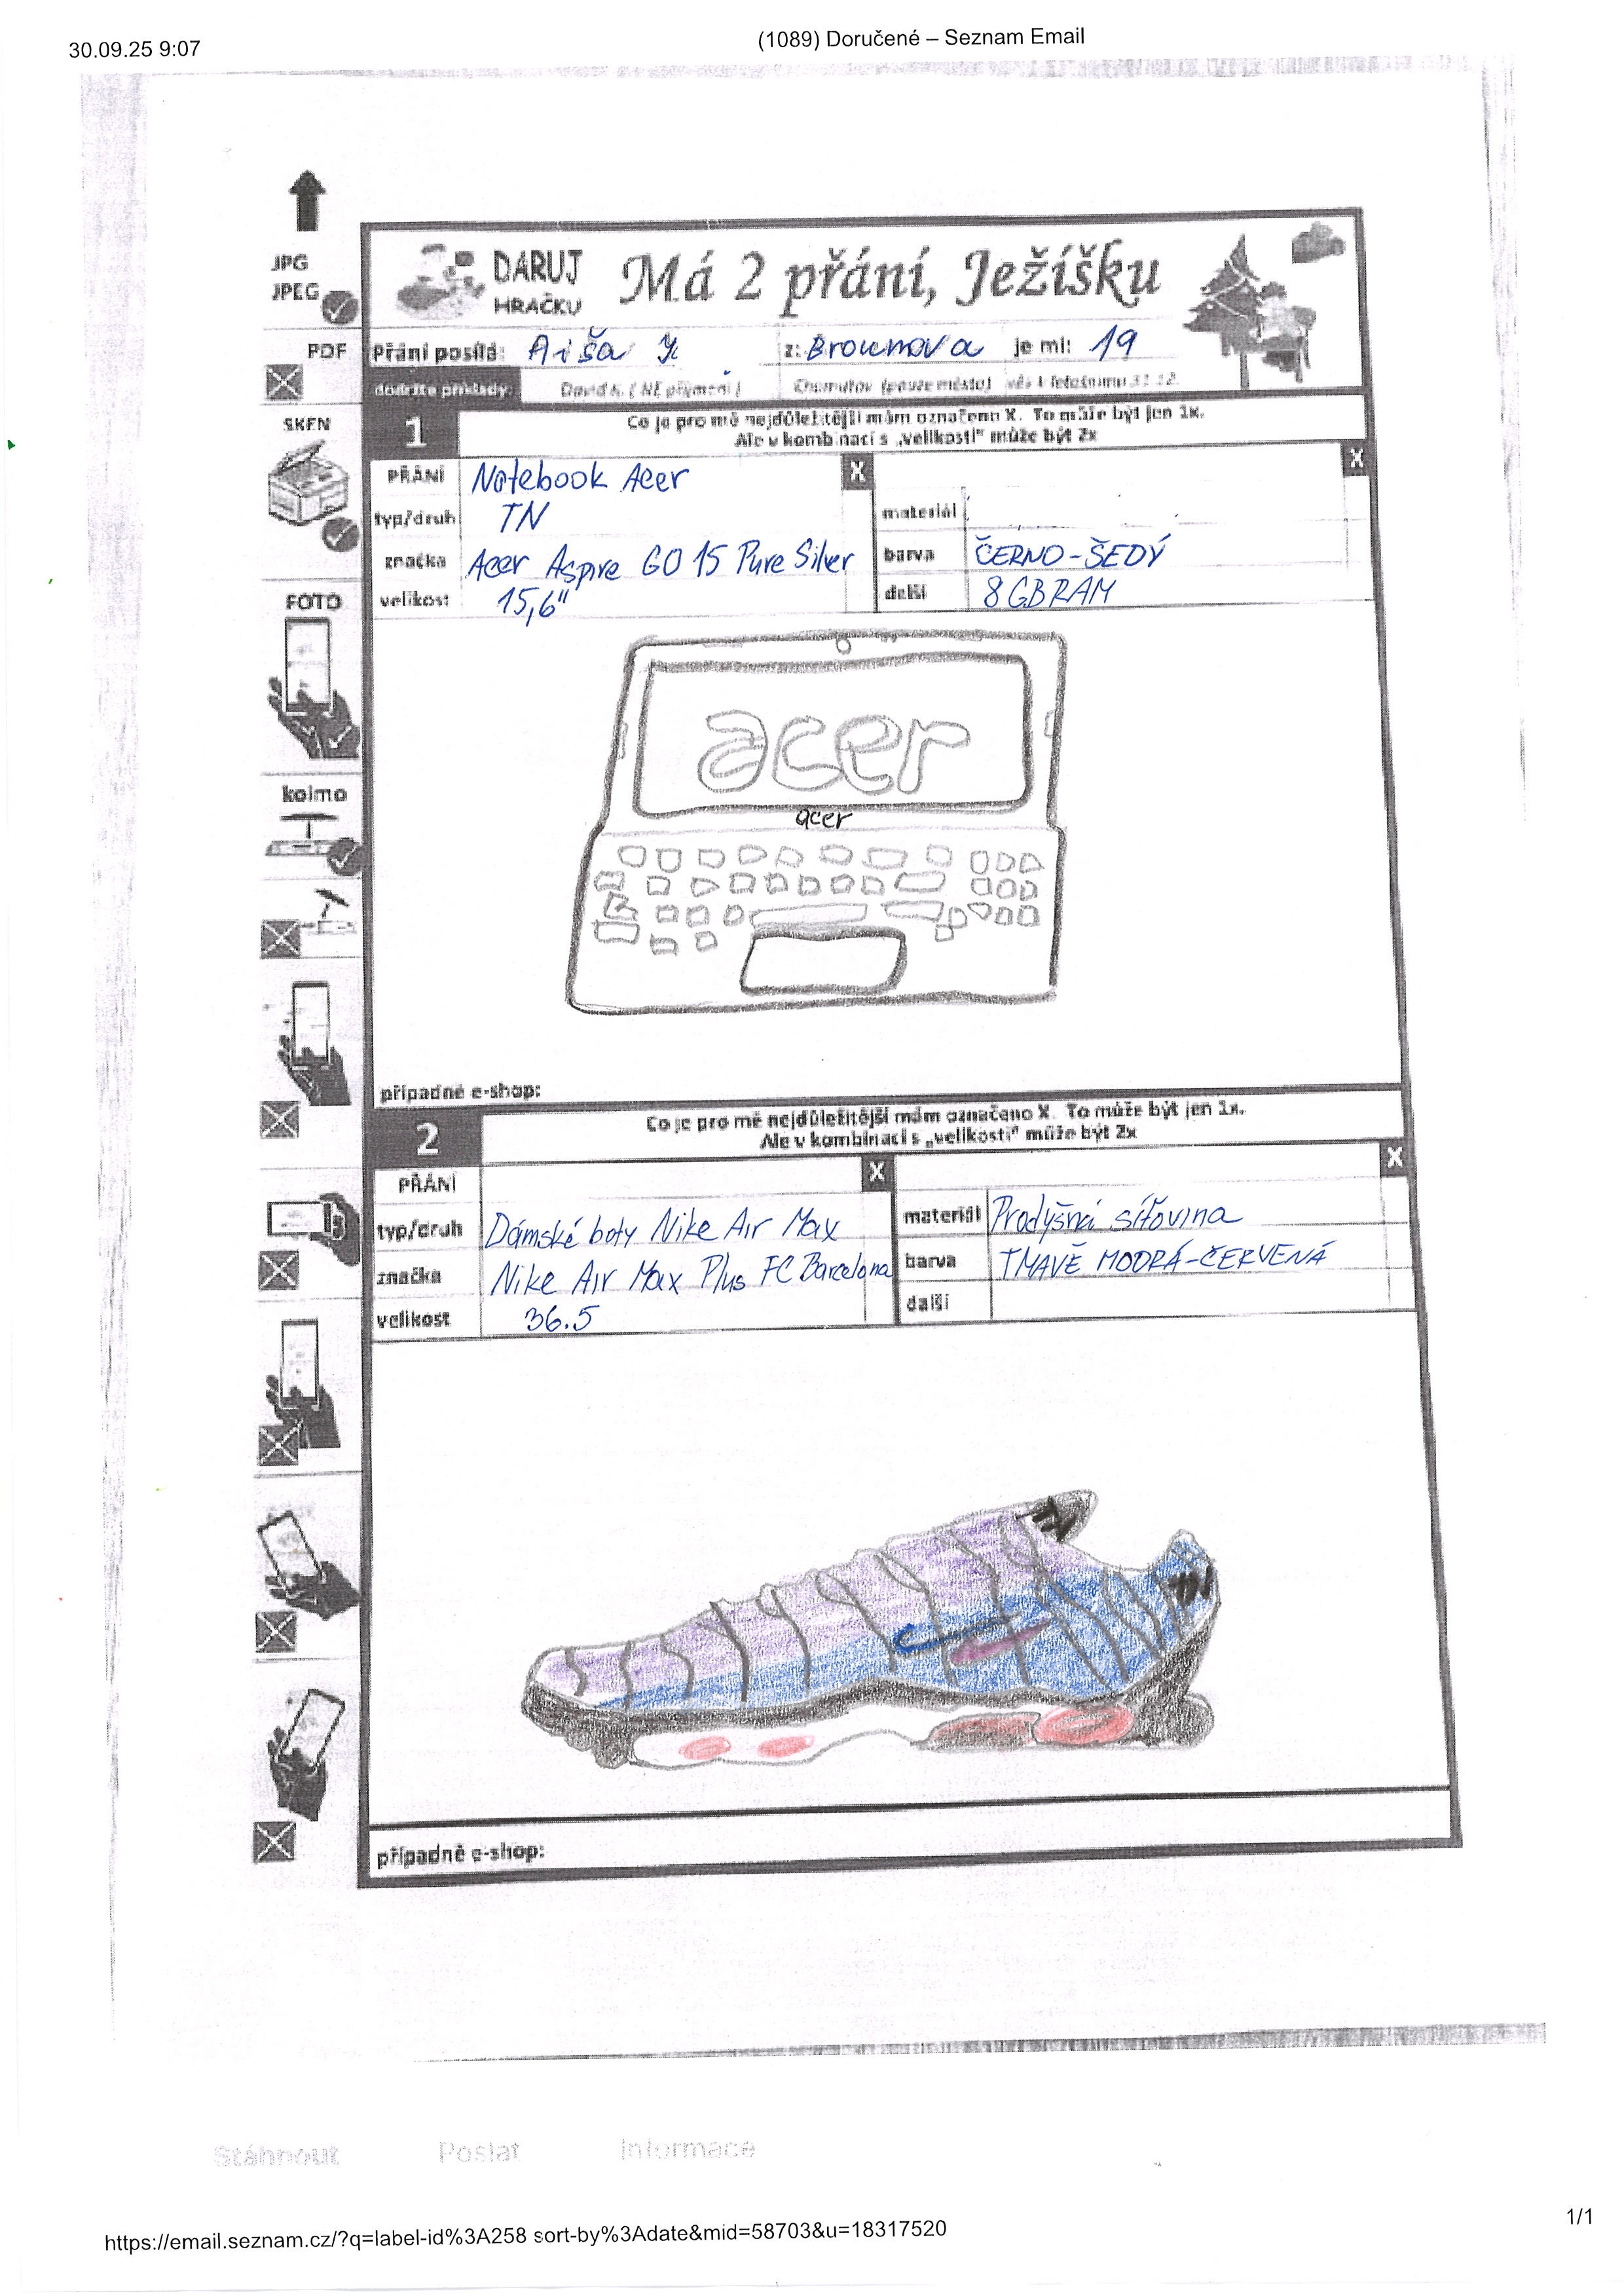 30.09.25 9:07
(1089) Doručené – Seznam Email
JPG
JPEG
PDF
SKEN
FOTO
kolmo
DARUJ
HRAČKU
Má 2 přání, Ježíšku
Přání posílá: Aiša Y. z: Brounova je mi: 19
dodržte příklady: David K. (NE příjmení) Chomutov (pouze město) věk k letošnímu 31.12.
1
Co je pro mě nejdůležitější mám označeno X. To může být jen 1x.
Ale v kombinaci s „velikostí" může být 2x
PŘÁNÍ Notebook Acer X X
typ/druh TN materiál
značka Acer Aspire GO 15 Pure Silver barva ČERNO-ŠEDÝ
velikost 15,6" další 8GB RAM
acer
acer
případně e-shop:
2
Co je pro mě nejdůležitější mám označeno X. To může být jen 1x.
Ale v kombinaci s „velikostí" může být 2x
PŘÁNÍ X X
typ/druh Dámské boty Nike Air Max materiál Prodyšná síťovina
značka Nike Air Max Plus FC Barcelona barva TMAVĚ MODRÁ-ČERVENÁ
velikost 36.5 další
případně e-shop:
Stáhnout Poslat Informace
https://email.seznam.cz/?q=label-id%3A258 sort-by%3Adate&mid=58703&u=18317520
1/1